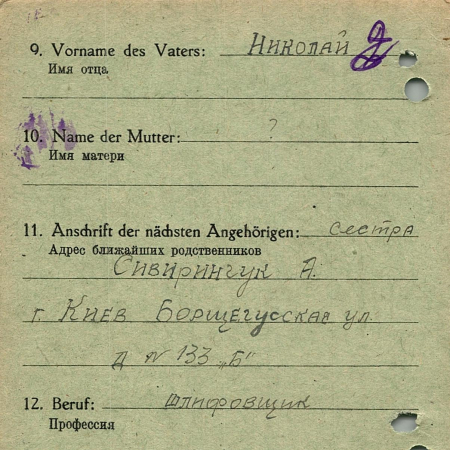 9. Vorname des Vaters: Николай
Имя отца
10. Name der Mutter: ?
Имя матери
11. Anschrift der nächsten Angehörigen: сестра
Адрес ближайших родственников
Сивиринчук А.
г. Киев Борщегусская ул
д № 133 „Б"
12. Beruf: шлифовщик
Профессия